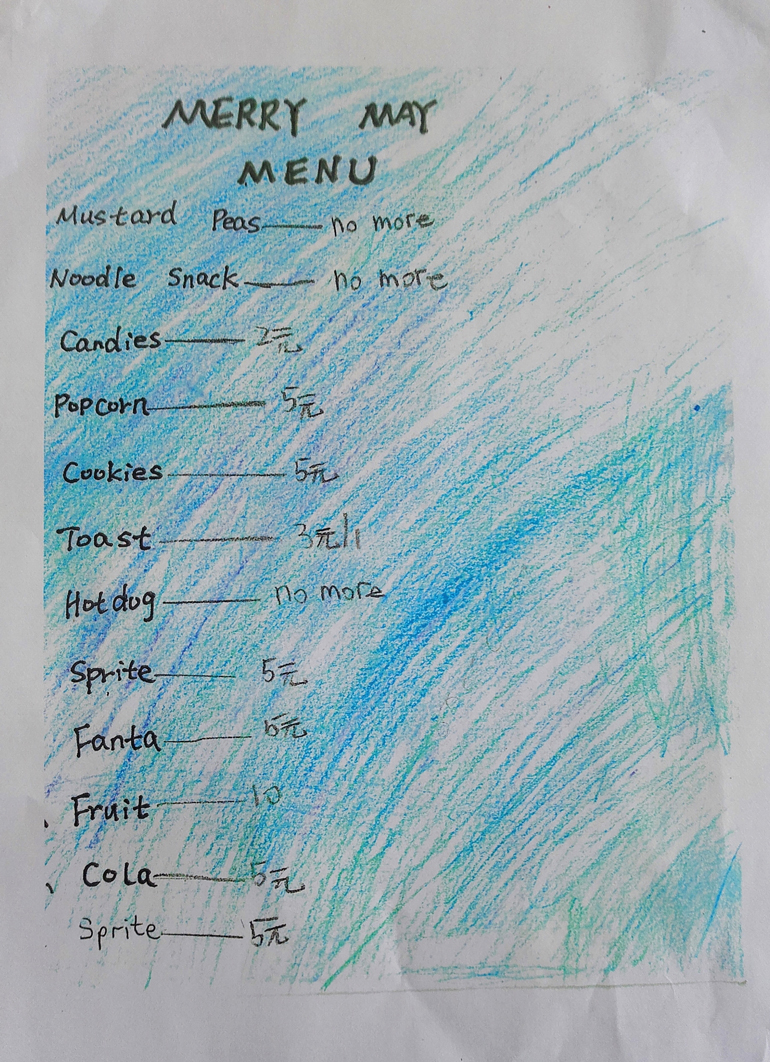 MERRY MAY
MENU
Mustard Peas — no more
Noodle Snack — no more
Candies — 2元
Popcorn — 5元
Cookies — 5元
Toast — 3元/1
Hotdog — no more
Sprite — 5元
Fanta — 5元
Fruit — 10
Cola — 5元
Sprite — 5元